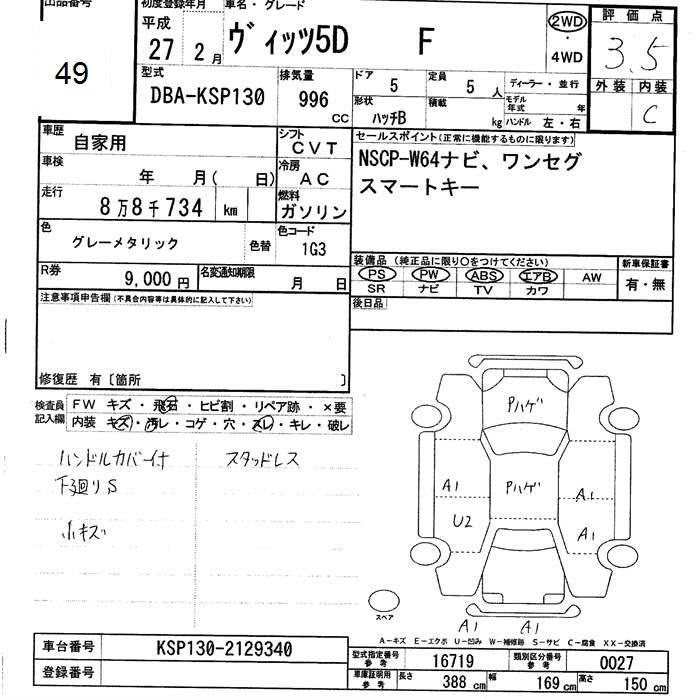 出品番号 初度登録年月 車名・グレード 評価点
49
平成 27 2月 ヴィッツ5D F 2WD・4WD 3.5
型式 DBA-KSP130 排気量 996 CC ドア 5 定員 5人 ディーラー・並行 外装 内装
形状 ハッチB 積載 kg モデル年式 年 C
ハンドル 左・右
車歴 自家用 シフト CVT セールスポイント(正常に機能するものに限ります)
車検 年 月( 日) 冷房 AC NSCP-W64ナビ、ワンセグ
走行 8万8千734 km 燃料 ガソリン スマートキー
色 グレーメタリック 色替 色コード 1G3
装備品(純正品に限り○をつけてください) 新車保証書
R券 9,000円 名変通知期限 月 日 PS PW ABS エアB AW 有・無
SR ナビ TV カワ
注意事項申告欄(不具合内容等は具体的に記入して下さい) 後日品
修復歴 有〔箇所 〕
検査員記入欄 FW キズ・飛石・ヒビ割・リペア跡・×要
内装 キズ・汚レ・コゲ・穴・スレ・キレ・破レ
ハンドルカバー付 スタッドレス
下廻りS
小キズ
Pハゲ
Pハゲ
A1 A1
U2 A1
スペア
A1 A1
A-キズ E-エクボ U-凹み W-補修跡 S-サビ C-腐食 XX-交換済
車台番号 KSP130-2129340
登録番号
型式指定番号 参考 16719 類別区分番号 参考 0027
車庫証明用 参考 長さ 388 cm 幅 169 cm 高さ 150 cm